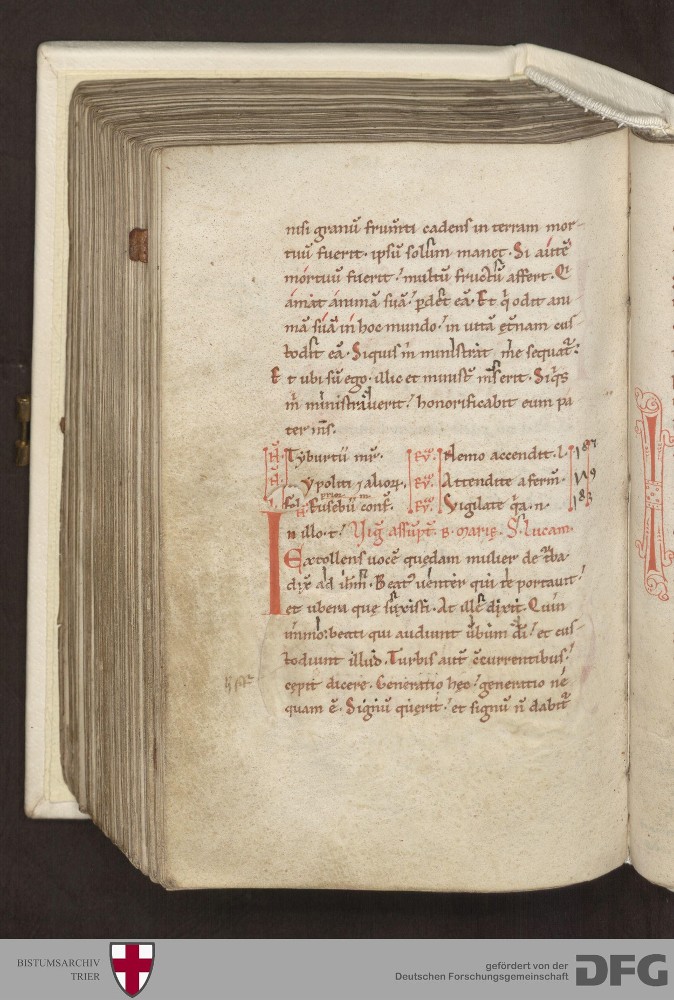 nisi granū frum̄ti cadens in terram mor-
tuū fuerit. ipsū solum manet. Si autē
mortuū fuerit. multū fructū affert. Qi
amat animā suā. ꝑdet eā. Et q̄ odit ani
mā suā in hoc mundo. in uitā et̄nam cus
todit eā. Siquis m̄ ministrat me sequat̄.
Et ubi sū ego. illic et minist̄ m̄s erit. Siq̄s
m̄ ministrauerit. honorificabit eum pa
ter m̄s.
Tyburtii mr̄. Nemo accendit. l.
ypoliti ⁊ alior̄. Attendite a ferm̄.
Eusebii conf̄. Vigilate q̄a. n.
In illo. t. Vig̃ assūpt̄. s. Marię. S. Lucam.
Extollens uocē quędam mulier de t̄ba
dix̄ ad ih̄m. Beat᷒ uenter qui te portauit.
et ubera quę suxisti. At ille dixit. Quin
immo. beati qui audiunt ūbum dī. et cus-
todiunt illud. Turbis aut̄ c̄currentibus.
cepit dicere. Generatio hec. generatio nē
quam ē. Signū quęrit. et signū n̄ dabit̄
BISTUMSARCHIV
TRIER
gefördert von der
Deutschen Forschungsgemeinschaft
DFG